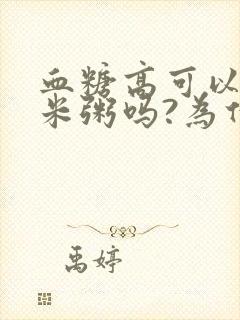 血糖高可以
米粥吗?為什
禹婷